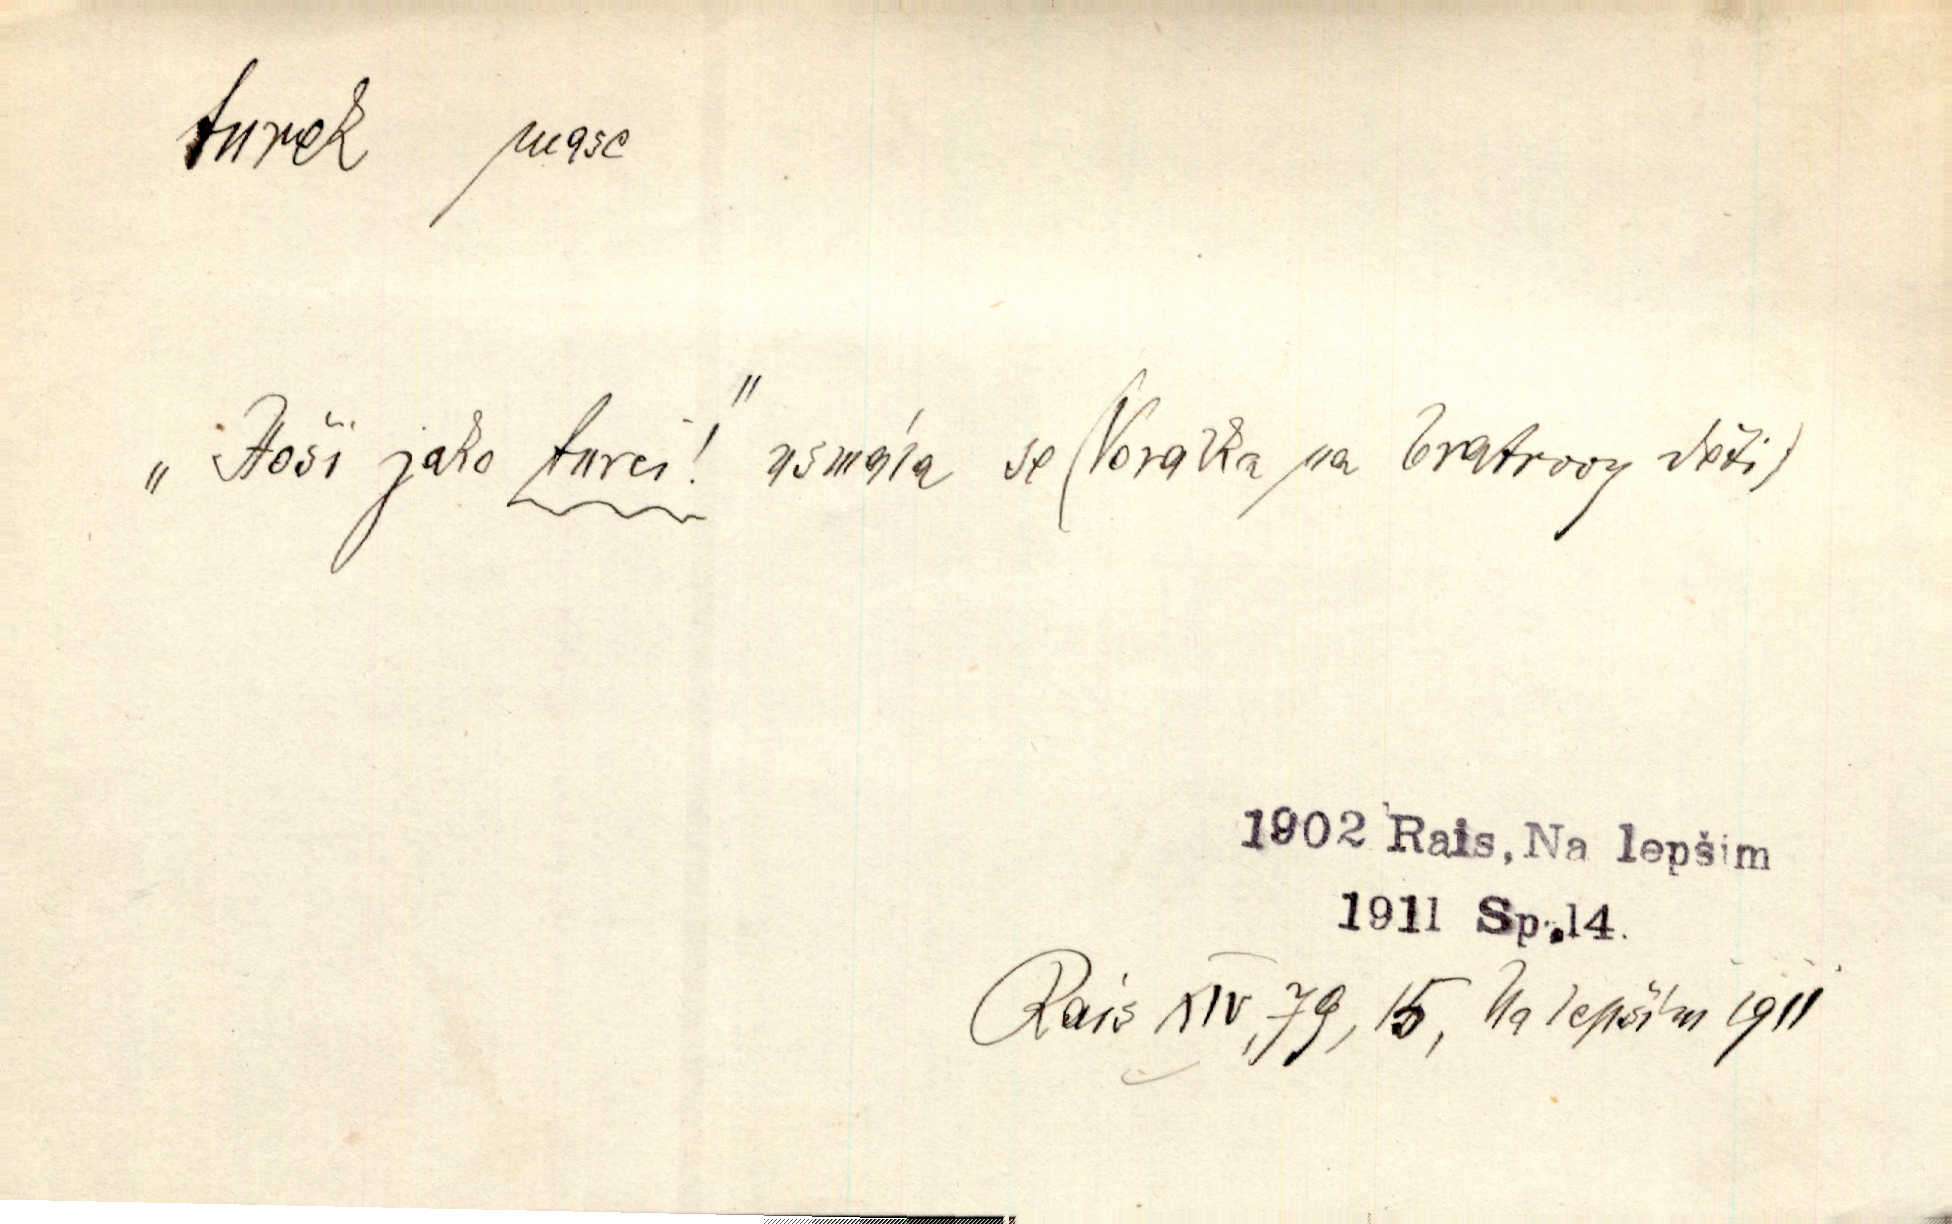 turek masc
„Hoši jako turci!" usmála se (Voralka na bratrovy děti)
1902 Rais, Na lepším
1911 Sp. 14.
Rais XIV, 79, 15, Na lepším 1911